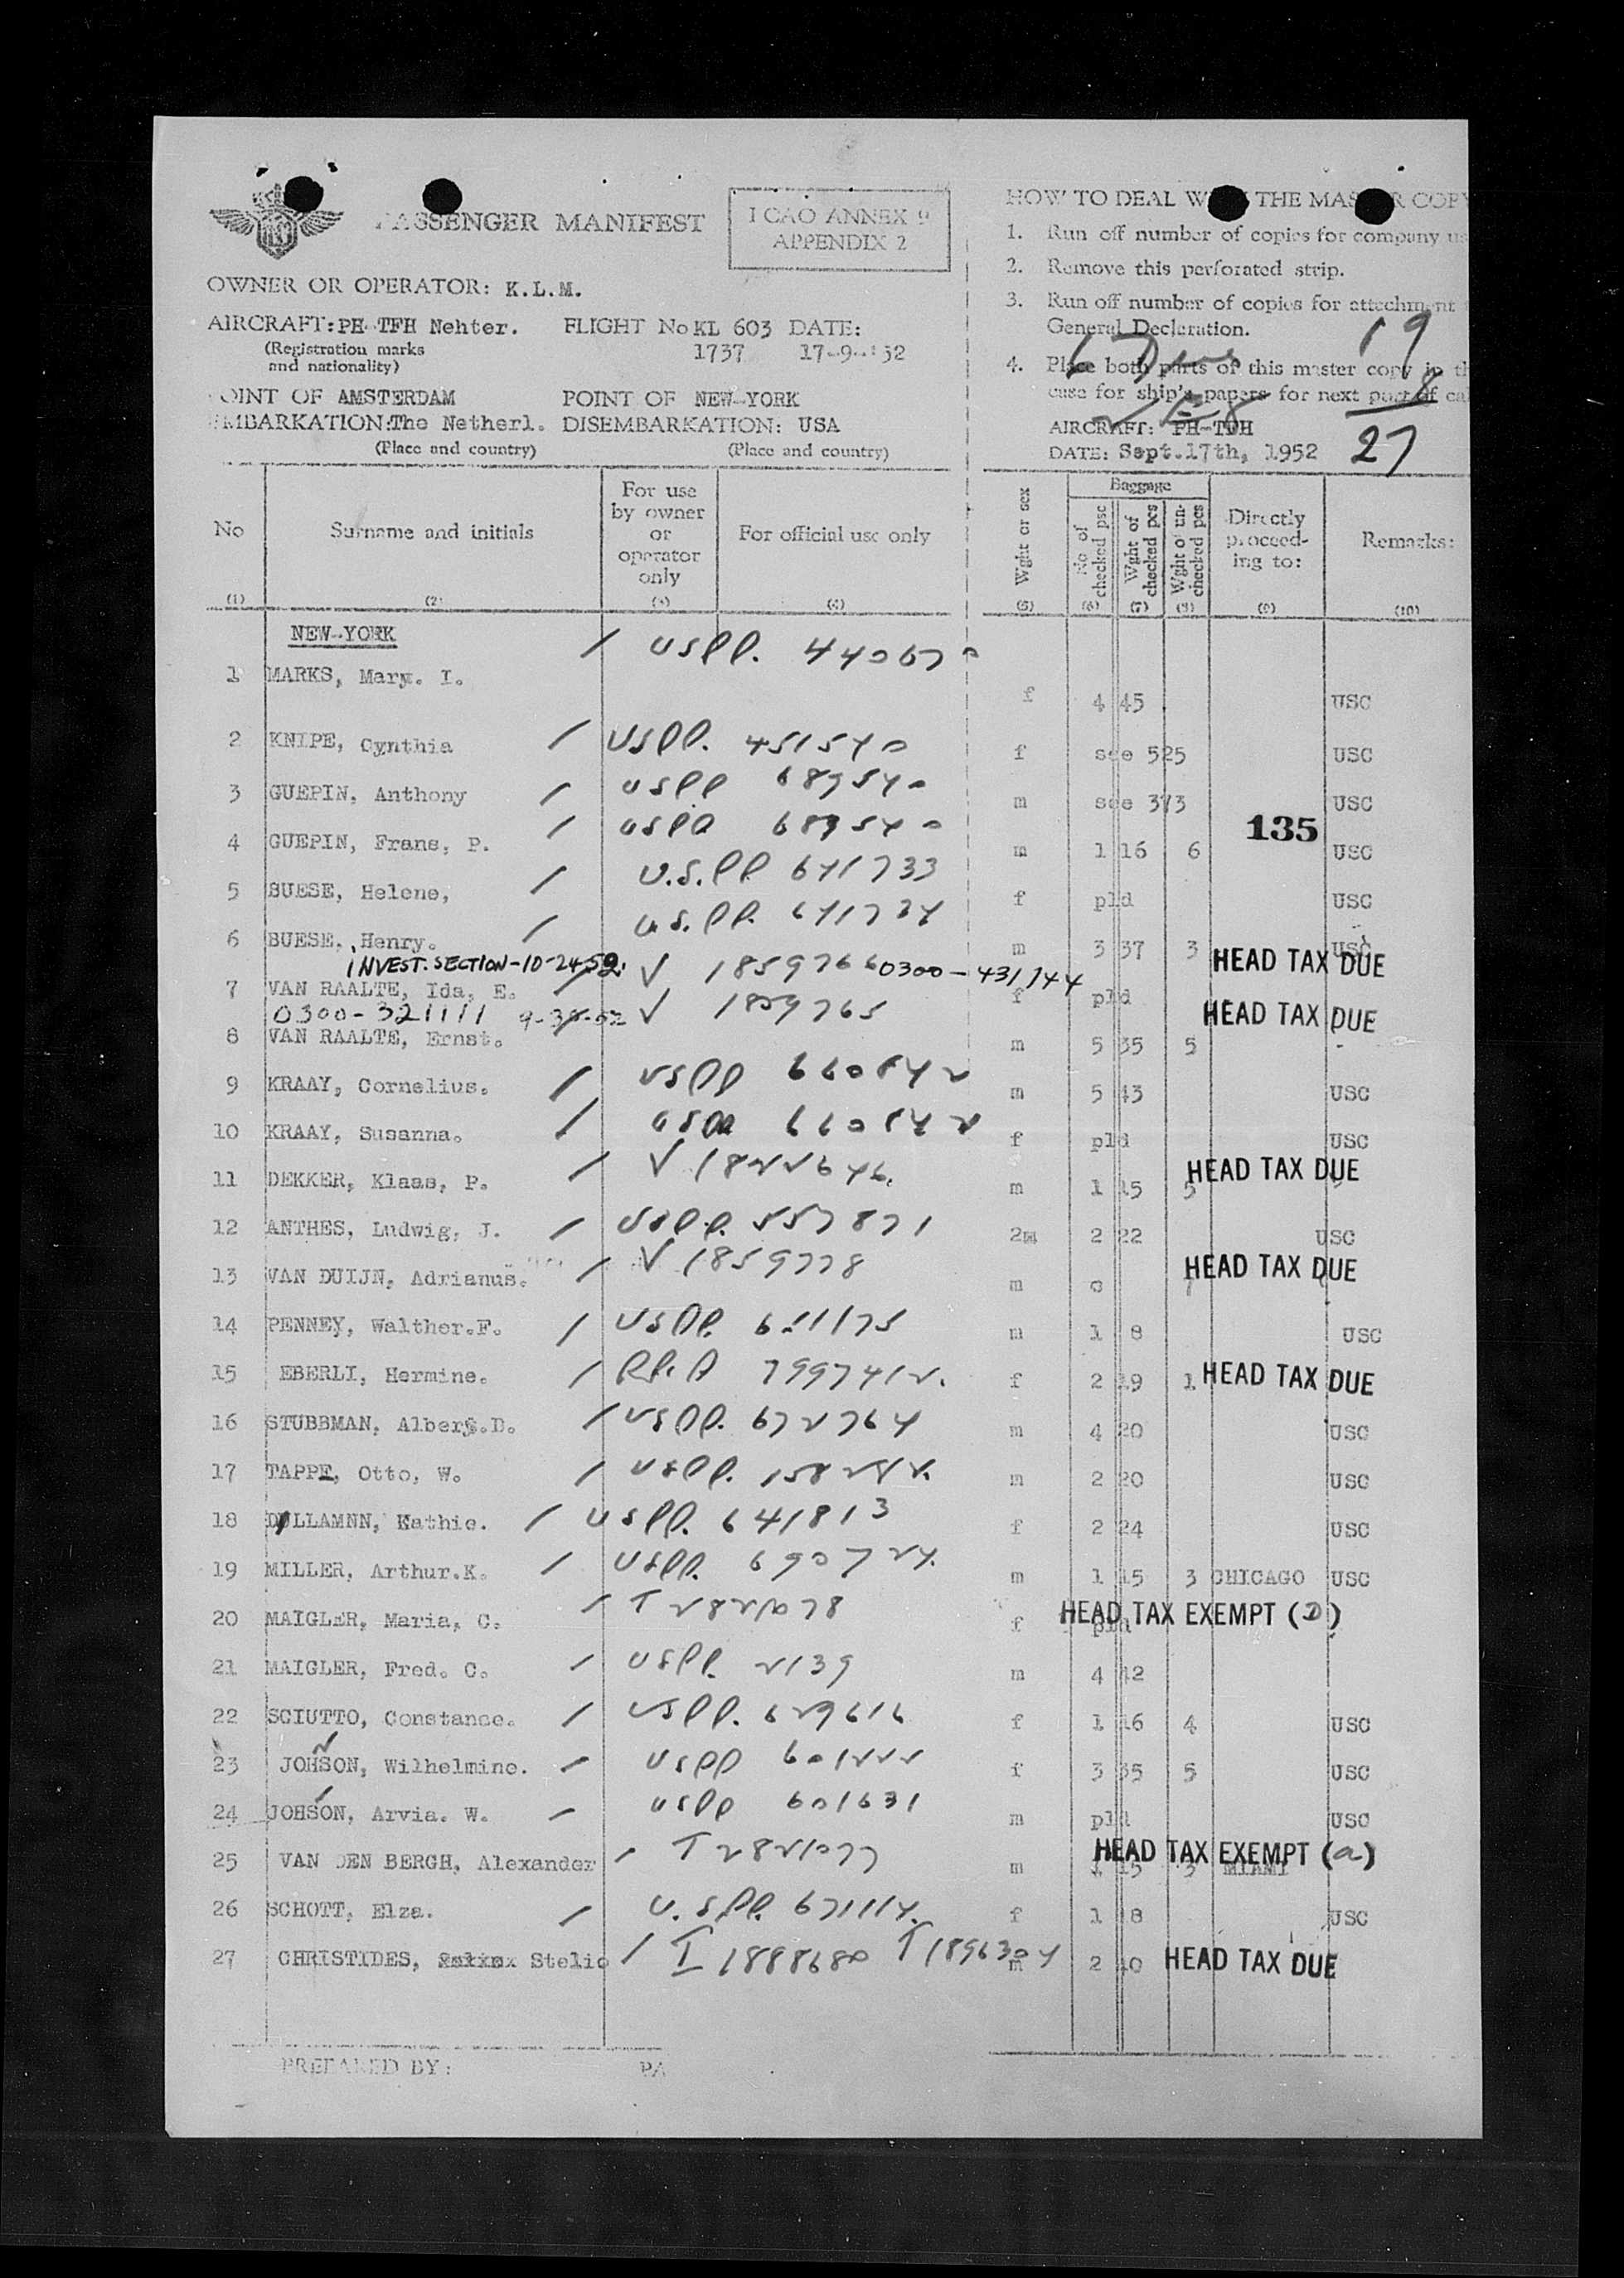 PASSENGER MANIFEST
I CAO ANNEX 9
APPENDIX 2
OWNER OR OPERATOR: K.L.M.
AIRCRAFT: PH-TFH Nehter. FLIGHT No KL 603 DATE:
(Registration marks 1737 17-9-'52
and nationality)
POINT OF AMSTERDAM POINT OF NEW-YORK
EMBARKATION: The Netherl. DISEMBARKATION: USA
(Place and country) (Place and country)
HOW TO DEAL WITH THE MASTER COPY
1. Run off number of copies for company us
2. Remove this perforated strip.
3. Run off number of copies for attachment
General Declaration.
4. Place both parts of this master copy in th
case for ship's papers for next port of ca
19
8
27
AIRCRAFT: PH-TDH
DATE: Sept.17th, 1952
No Surname and initials For use by owner or operator only For official use only Wght or sex Baggage No of checked psc Wght of checked pcs Wght of un-checked pcs Directly proceed-ing to: Remarks:
(1) (2) (3) (4) (5) (6) (7) (8) (9) (10)
NEW-YORK
1 MARKS, Mary. I. / USPP. 440670 f 4 45 USC
2 KNIPE, Cynthia / USPP. 451540 f see 525 USC
3 GUEPIN, Anthony / USPP 689540 m see 373 USC
135
4 GUEPIN, Frans, P. / USPP 689540 m 1 16 6 USC
5 BUESE, Helene, / U.S.PP 641733 f pld USC
6 BUESE, Henry. / U.S.PP. 641734 m 3 37 3 USC
INVEST. SECTION-10-24-52 HEAD TAX DUE
7 VAN RAALTE, Ida, E. / V 1859766 0300-431744 f pld
0300-321111 9-30-52 HEAD TAX DUE
8 VAN RAALTE, Ernst. V 1859765 m 5 35 5
9 KRAAY, Cornelius. / USPP 660542 m 5 43 USC
10 KRAAY, Susanna. / USPP 660542 f pld USC
11 DEKKER, Klaas, P. / V 1822646 m 1 15 5 HEAD TAX DUE
12 ANTHES, Ludwig, J. / USPP. 557871 2m 2 22 USC
13 VAN DUIJN, Adrianus. / V 1859778 m HEAD TAX DUE
14 PENNEY, Walther.F. / USPP. 611175 m 1 8 USC
15 EBERLI, Hermine. / 7997412. f 2 19 1 HEAD TAX DUE
16 STUBBMAN, Albert.D. / USPP. 672764 m 4 20 USC
17 TAPPE, Otto, W. / USPP. m 2 20 USC
18 LLAMNN, Kathie. / USPP. 641813 f 2 24 USC
19 MILLER, Arthur.K. / USPP. 690724. m 1 15 3 CHICAGO USC
20 MAIGLER, Maria, C. / T 2821078 f pld HEAD TAX EXEMPT (D)
21 MAIGLER, Fred. C. / USPP. 2139 m 4 42
22 SCIUTTO, Constance. / USPP. 629616 f 1 16 4 USC
N
23 JOHSON, Wilhelmine. / USPP 601222 f 3 35 5 USC
24 JOHSON, Arvia. W. / USPP 601631 m pld USC
25 VAN DEN BERGH, Alexander / T 2821077 m 1 15 3 MIAMI HEAD TAX EXEMPT (a)
26 SCHOTT, Elza. / U.S.PP. 671114. f 1 18 USC
27 CHRISTIDES, Stelio / I 1888680 T 1896304 m 2 40 HEAD TAX DUE
PREPARED BY: PA